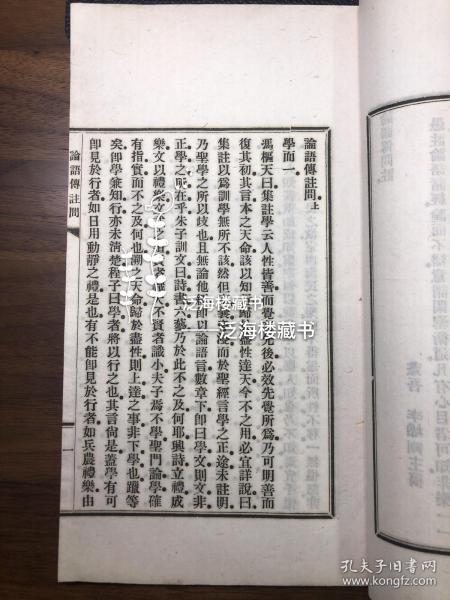 論語傳註問上
學而一
馮樞天曰集註學云人性皆善而覺有先後必效先覺所爲乃可明善而
復其初其言本之天命該以知行歸於盡性達天今不之用必宜詳說曰
集註以爲訓學無所不該然但 義 而於聖經言學之正途未註明
乃聖學之所以歧也且無論他 即以論語言數章下即曰學文則文非
正學之所在乎朱子訓文曰詩書六藝乃於此不之及何耶興詩立禮成
樂文以禮樂文 賢者識大不賢者識小夫子焉不學聖門論學確
有指實而不之及何也 之天命歸於盡性則上達之事非下學也躐等
矣即學兼知行亦未清楚程子曰學者將以行之也其言尙是蓋學有可
即見於行者如日用動靜之禮是也有不能即見於行者如兵農禮樂由
論語傳註問
一
泛海楼藏书
泛海楼藏书
泛海楼藏书
孔夫子旧书网
www.kongfz.com